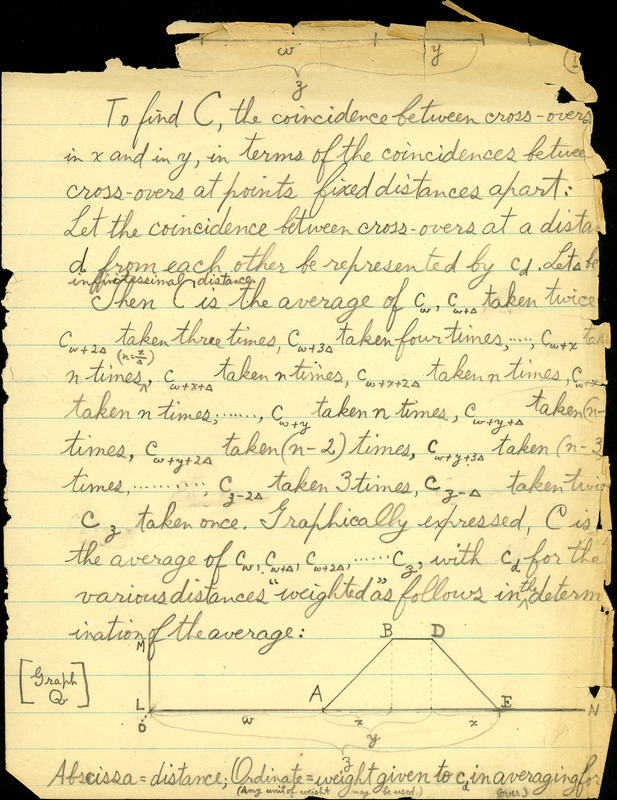 w y
z
1
To find C, the coincidence between cross-overs
in x and in y, in terms of the coincidences betwee
cross-overs at points fixed distances apart:
Let the coincidence between cross-overs at a dista
d from each other be represented by c_d. Let Δ be
infinitessimal distance
Then C is the average of c_w, c_w+Δ taken twice
c_w+2Δ taken three times, c_w+3Δ taken four times,....., c_w+x ta
(n=x/Δ)
n times, c_w+x+Δ taken n times, c_w+x+2Δ taken n times, c_w+x
taken n times,......, c_w+y taken n times, c_w+y+Δ taken (n-
times, c_w+y+2Δ taken (n-2) times, c_w+y+3Δ taken (n-3
times,.........., c_z-2Δ taken 3 times, c_z-Δ taken twice
c_z taken once. Graphically expressed, C is
the average of c_w, c_w+Δ, c_w+2Δ,......c_z, with c_d for the
various distances "weighted" as follows in the determ
ination of the average:
M B D
[Graph Q.]
L A E N
O w x x
y
z
Abscissa = distance; Ordinate = weight given to c_d in averaging for
(Any unit of weight may be used.) (over)